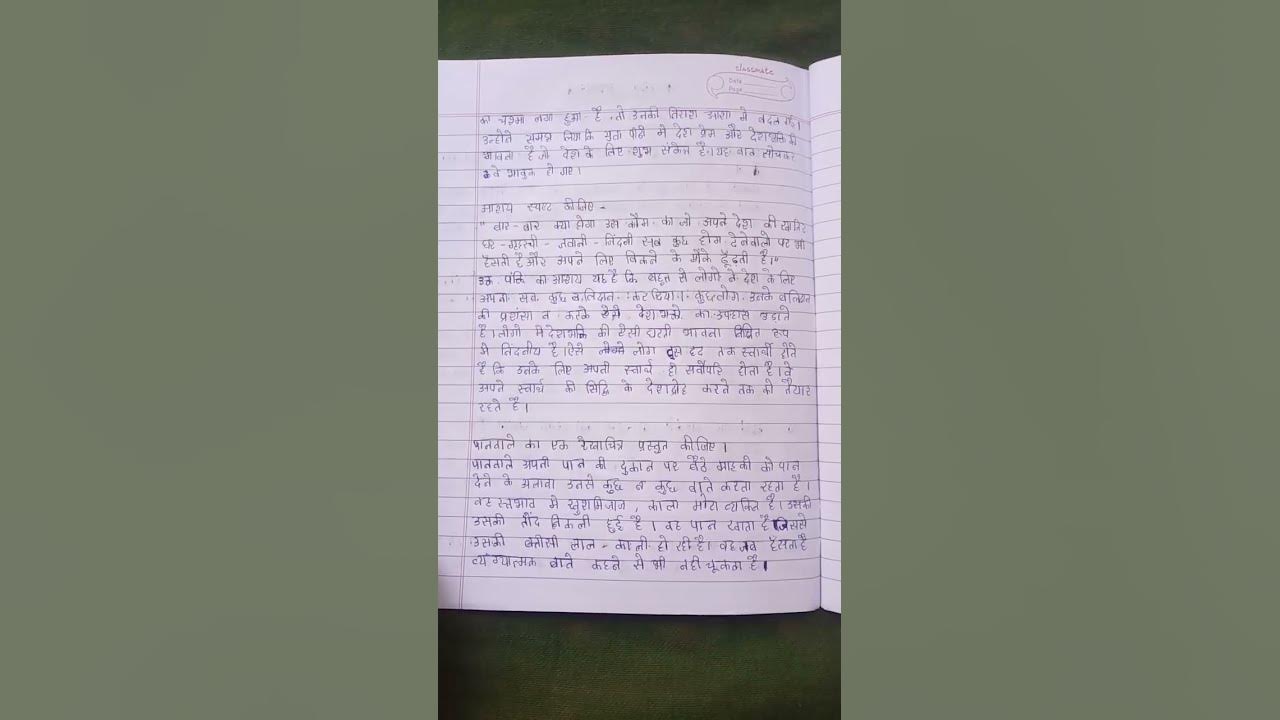 classmate
Date
Page
का चश्मा लगा हुआ है, तो उनकी निराशा आशा में बदल गई।
उन्होंने समझ लिया कि युवा पीढी में देश प्रेम और देशभक्ति की
भावना है जो देश के लिए शुभ संकेत है। यह बात सोचकर
वे भावुक हो गए।
आशय स्पष्ट कीजिए -
" बार - बार क्या होगा उस कौम का जो अपने देश की खातिर
घर - गृहस्थी - जवानी - जिंदगी सब कुछ होम देनेवालो पर भी
हँसती है और अपने लिए बिकने के मौके ढूँढती है।"
उक्त पंक्ति का आशय यह है कि बहुत से लोगो ने देश के लिए
अपना सब कुछ बलिदान कर दिया। कुछ लोग उनके बलिदान
की प्रशंसा न करके ऐसे देशभक्तो का उपहास उडाते
है। लोगो में देशभक्ति की ऐसी घटती भावना निश्चित रूप
से निंदनीय है। ऐसे लोग इस हद तक स्वार्थी होते
है कि उनके लिए अपना स्वार्थ ही सर्वोपरि होता है। वे
अपने स्वार्थ की सिद्धि के देशद्रोह करने तक को तैयार
रहते है।
पानवाले का एक रेखाचित्र प्रस्तुत कीजिए।
पानवाले अपनी पान की दुकान पर बैठे ग्राहको को पान
देने के अलावा उनसे कुछ न कुछ बाते करता रहता है।
वह स्वभाव से खुशमिजाज, काला मोटा व्यक्ति है। उसकी
उसकी तोंद निकली हुई है। वह पान खाता है जिससे
उसकी बतीसी लाल - काली हो रही है। वह जब हँसता है
व्यंग्यात्मक बाते कहने से भी नही चूकता है।